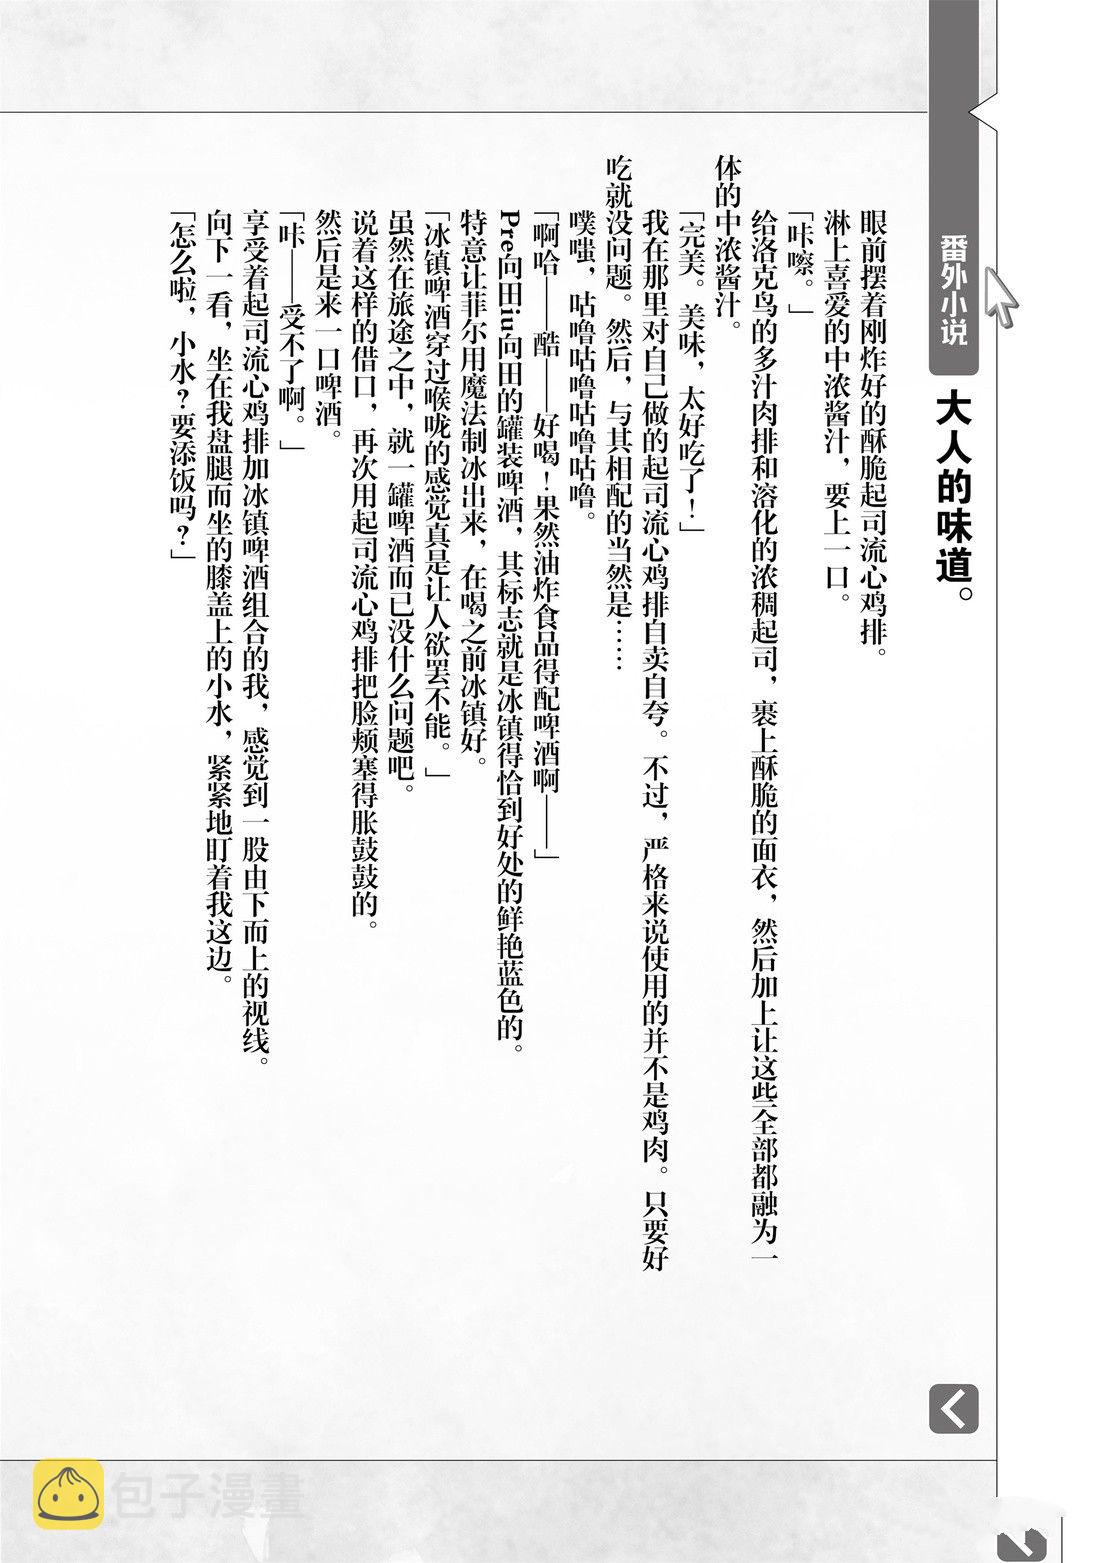 番外小说
大人的味道。
眼前摆着刚炸好的酥脆起司流心鸡排。
淋上喜爱的中浓酱汁，要上一口。
「咔嚓。」
给洛克鸟的多汁肉排和溶化的浓稠起司，裹上酥脆的面衣，然后加上让这些全部都融为一
体的中浓酱汁。
「完美。美味，太好吃了！」
我在那里对自己做的起司流心鸡排自卖自夸。不过，严格来说使用的并不是鸡肉。只要好
吃就没问题。然后，与其相配的当然是……
噗嗤，咕噜咕噜咕噜咕噜。
「啊哈——酷——好喝！果然油炸食品得配啤酒啊——」
Pre向田iu向田的罐装啤酒，其标志就是冰镇得恰到好处的鲜艳蓝色的。
特意让菲尔用魔法制冰出来，在喝之前冰镇好。
「冰镇啤酒穿过喉咙的感觉真是让人欲罢不能。」
虽然在旅途之中，就一罐啤酒而已没什么问题吧。
说着这样的借口，再次用起司流心鸡排把脸颊塞得胀鼓鼓的。
然后是来一口啤酒。
「咔——受不了啊。」
享受着起司流心鸡排加冰镇啤酒组合的我，感觉到一股由下而上的视线。
向下一看，坐在我盘腿而坐的膝盖上的小水，紧紧地盯着我这边。
「怎么啦，小水？要添饭吗？」
包子漫畫